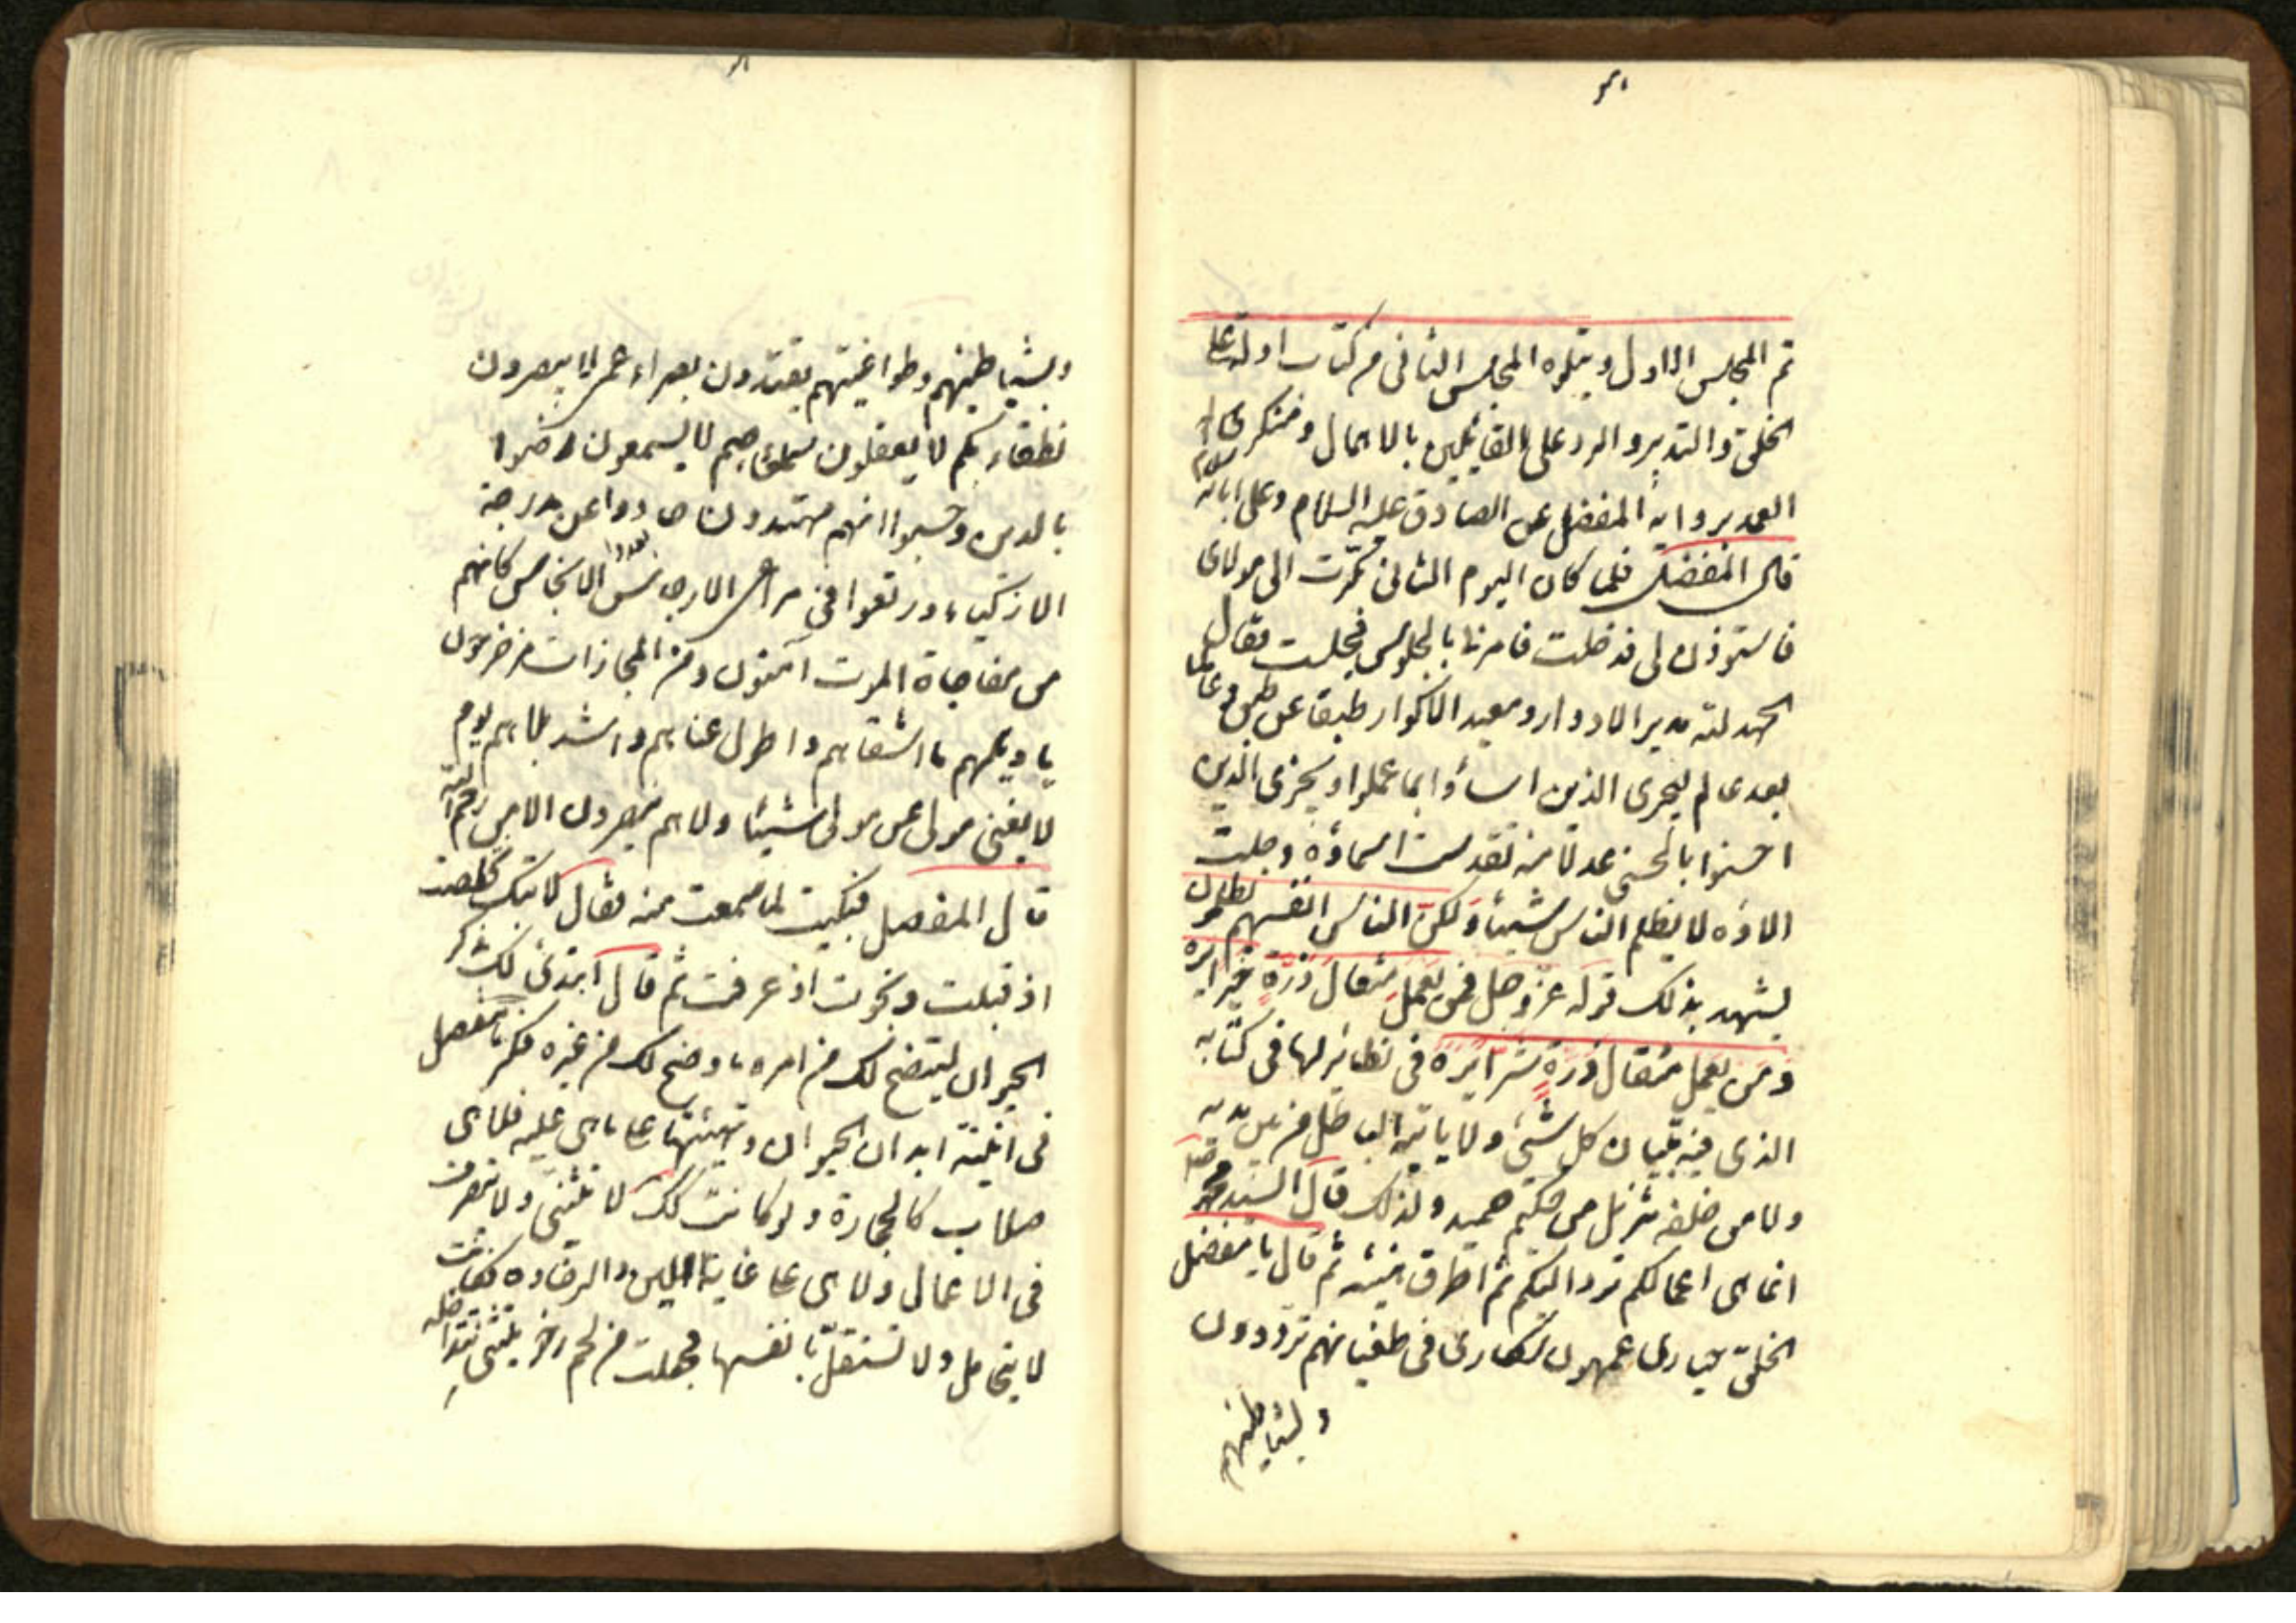 تم المجلس الاول ويتلوه المجلس الثانی من كتاب ادلة علی
الخلق والتدبير والرد علی القائلين بالاهمال ومنكری
العمد برواية المفضل عن الصادق عليه السلام وعلی ابائه
قال المفضل فلما كان اليوم الثانی بكرت الی مولای
فاستوذن لی فدخلت فامرنا بالجلوس فجلست فقال
الحمد لله مدير الادوار ومعيد الاكوار طبقا عن طبق وعالما
بعد عالم ليجزی الذين اساؤا بما عملوا ويجزی الذين
احسنوا بالحسنی عدلا منه تقدست اسماؤه وجلت
الاؤه لا يظلم الناس شيئا ولكن الناس انفسهم يظلمون
يشهد بذلك قوله عز وجل فمن يعمل مثقال ذرة خيرا يره
ومن يعمل مثقال ذرة شرا يره فی نظائر لها فی كتابه
الذی فيه تبيان كل شیء ولا ياتيه الباطل من بين يديه
ولا من خلفه تنزيل من حكيم حميد ولذلك قال السيد محمد
انما هی اعمالكم ترد اليكم ثم اطرق هنيئة ثم قال يا مفضل
الخلق حياری عمهون سكاری فی طغيانهم يترددون
وبشياطينهم
وبشياطينهم وطواغيتهم يقتدون بصراء عمی لا يبصرون
نطقاء بكم لا يعقلون سمعاء صم لا يسمعون رضوا
بالدون وحسبوا انهم مهتدون حادوا عن مدرجة
الاكياس ورتعوا فی مرعی الارجاس الانجاس كانهم
من مفاجاة الموت آمنون وعن المجازات مزحزحون
يا ويلهم ما اشقاهم واطول عناهم واشد بلاهم يوم
لا يغنی مولی عن مولی شيئا ولا هم ينصرون الا من رحم الله
قال المفضل فبكيت لما سمعت منه فقال لا تبك تخلصت
اذ قبلت ونجوت اذ عرفت ثم قال ابتدئ لك بذكر
الحيوان ليتضح لك من امره ما وضح لك من غيره فكر يا مفضل
فی ابنية ابدان الحيوان وتهيئتها علی ما هی عليه فلا هی
صلاب كالحجارة ولو كانت كذلك لا تنثنی ولا تتصرف
فی الاعمال ولا هی علی غاية اللين والرخاوة فكانت
لا يتحامل ولا تستقل بانفسها فجعلت من لحم رخو ينثنی